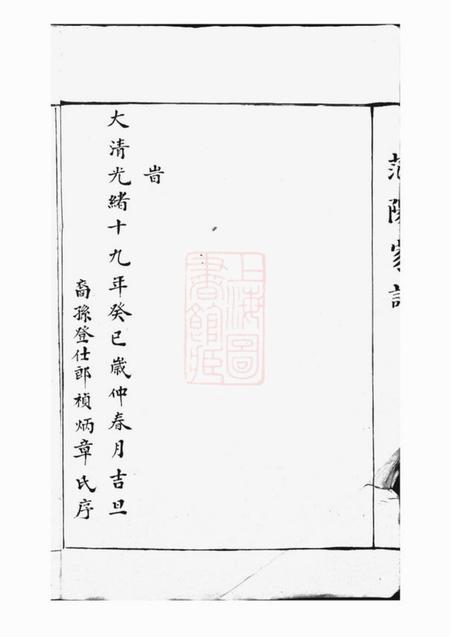 范陽家譜
旹
大清光緒十九年癸巳歲仲春月吉旦
裔孫登仕郎禎炳章氏序
上海圖書館藏